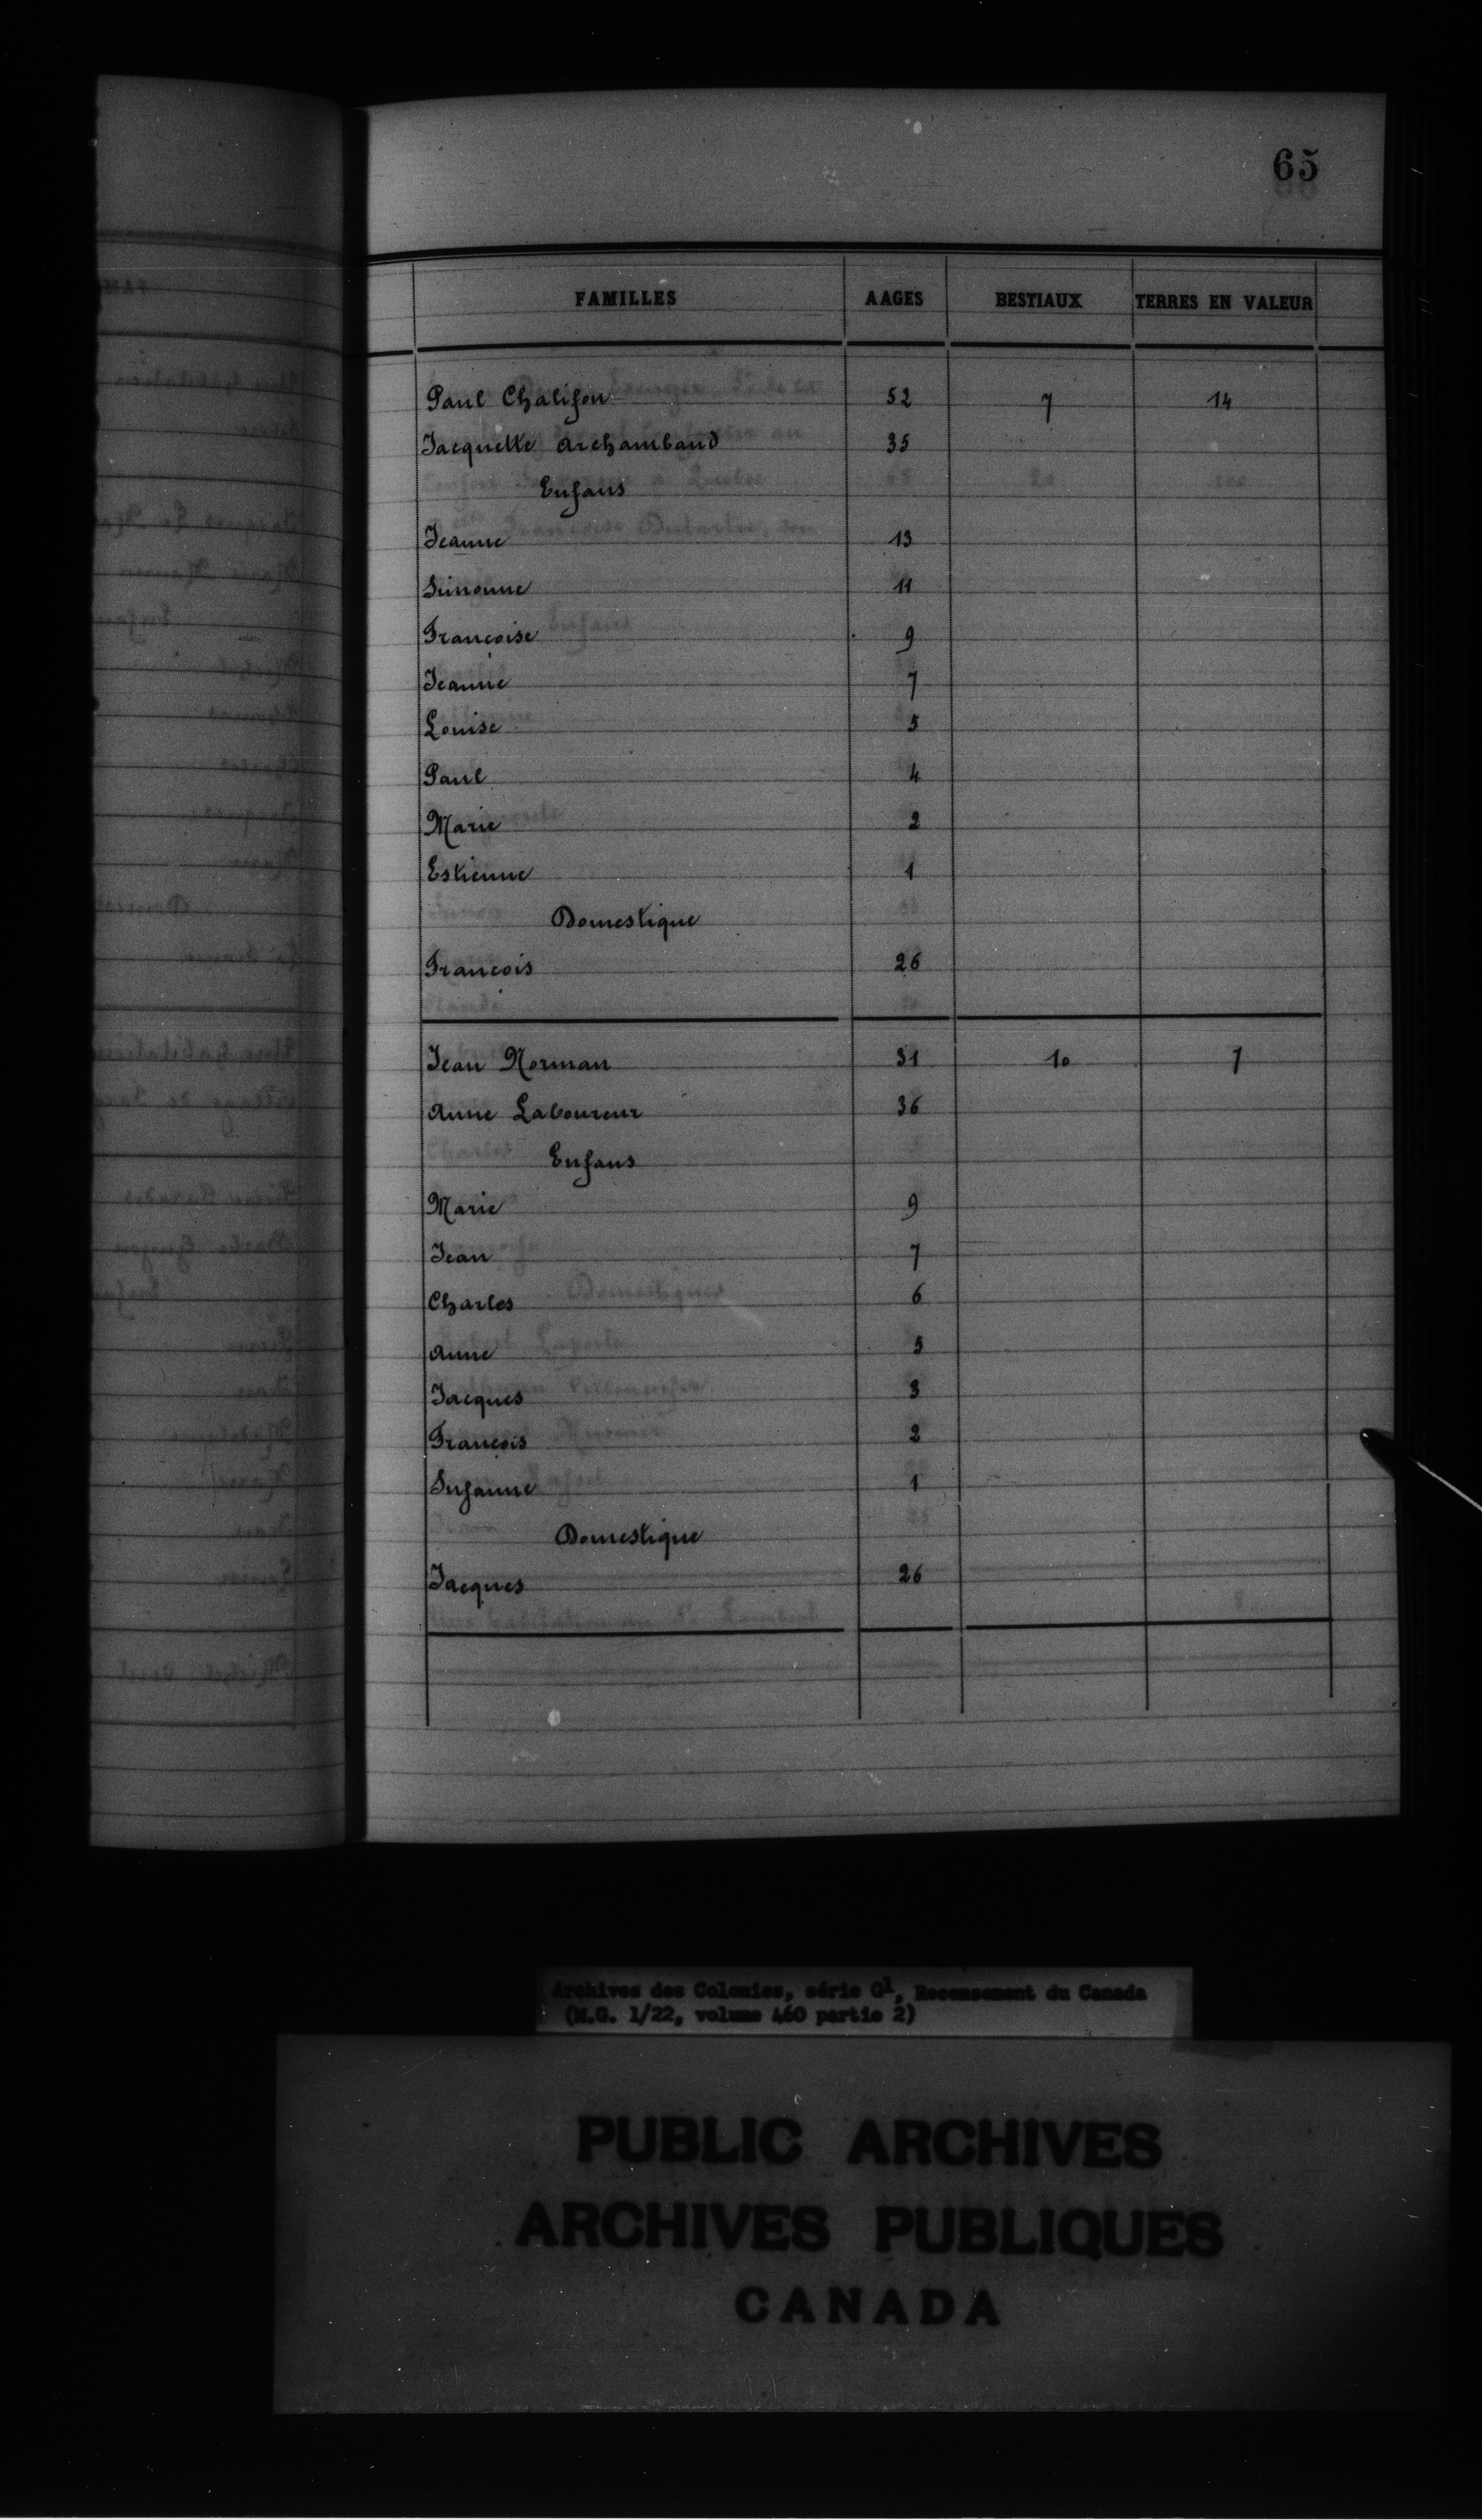 65
FAMILLES AAGES BESTIAUX TERRES EN VALEUR
Paul Chalifou 52 7 14
Jacquette Archambaud 35
Enfans
Jeanne 13
Simonne 11
Françoise 9
Jeanne 7
Louise 5
Paul 4
Marie 2
Estienne 1
Domestique
François 26
Jean Norman 31 10 7
Anne Laboureur 36
Enfans
Marie 9
Jean 7
Charles 6
Anne 5
Jacques 3
François 2
Suzanne 1
Domestique
Jacques 26
Archives des Colonies, série G1, Recensement du Canada
(M.G. 1/22, volume 460 partie 2)
PUBLIC ARCHIVES
ARCHIVES PUBLIQUES
CANADA